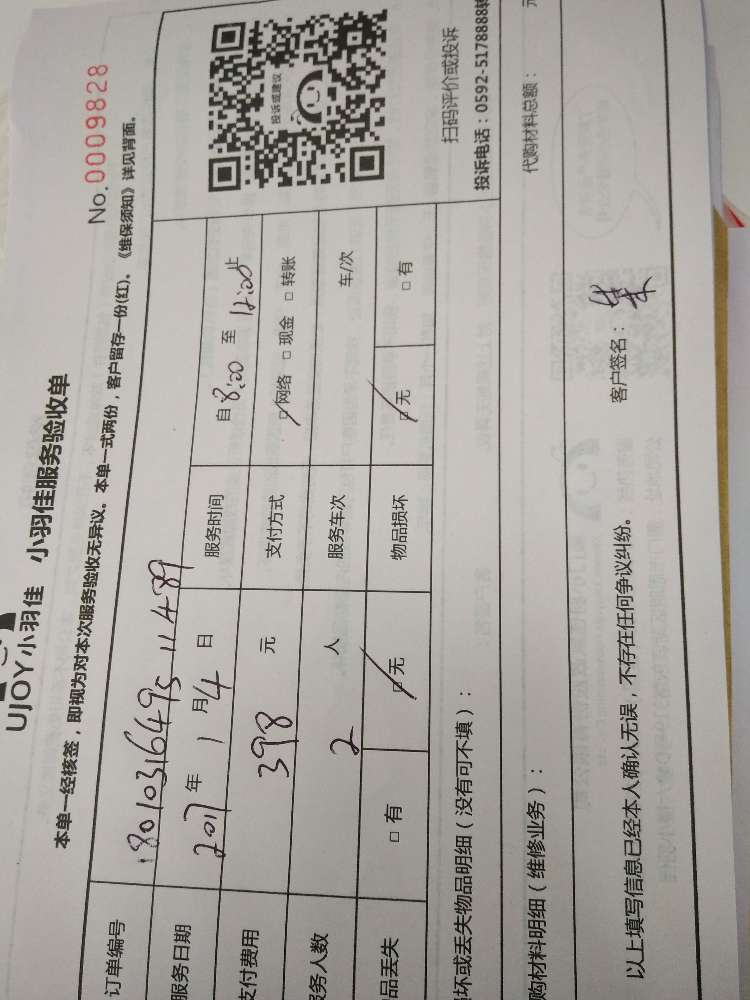 UJOY小羽佳 小羽佳服务验收单
No.0009828
本单一经核签，即视为对本次服务验收无异议。本单一式两份，客户留存一份(红)。《维保须知》详见背面。
订单编号 180103164951 11489
服务日期 2017 年 1 月 4 日 服务时间 自 8:00 至 12:00 止
支付费用 398 元 支付方式 □网络 □现金 □转账
务人数 2 人 服务车次 车/次
品丢失 □有 □无 物品损坏 □无 □有
投诉或建议
扫码评价或投诉
投诉电话：0592-5178888转
坏或丢失物品明细（没有可不填）：
购材料明细（维修业务）： 代购材料总额： 元
以上填写信息已经本人确认无误，不存在任何争议纠纷。 客户签名：朱